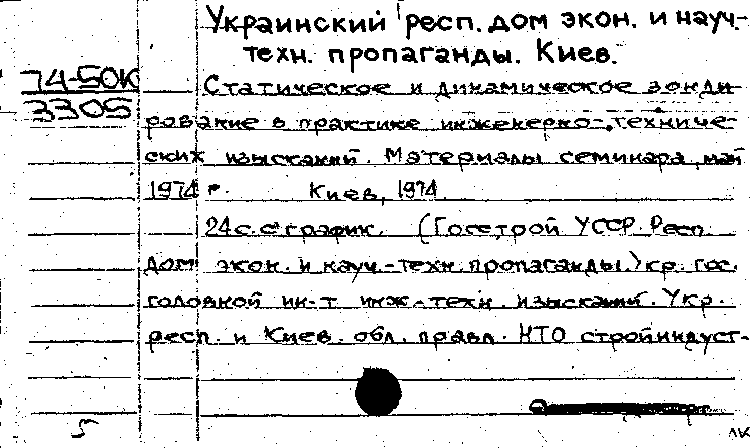 Украинский респ. дом экон. и науч.-
техн. пропаганды. Киев.
74-50к
3305
Статическое и динамическое зонди-
рование в практике инженерно-техниче-
ских изысканий. Материалы семинара, май
1974 г. Киев, 1974
24 с. с график. (Госстрой УССР. Респ.
дом экон. и науч.-техн. пропаганды. Укр. гос.
головной ин-т инж.-техн. изысканий. Укр.
респ. и Киев. обл. правл. НТО стройиндуст-
5